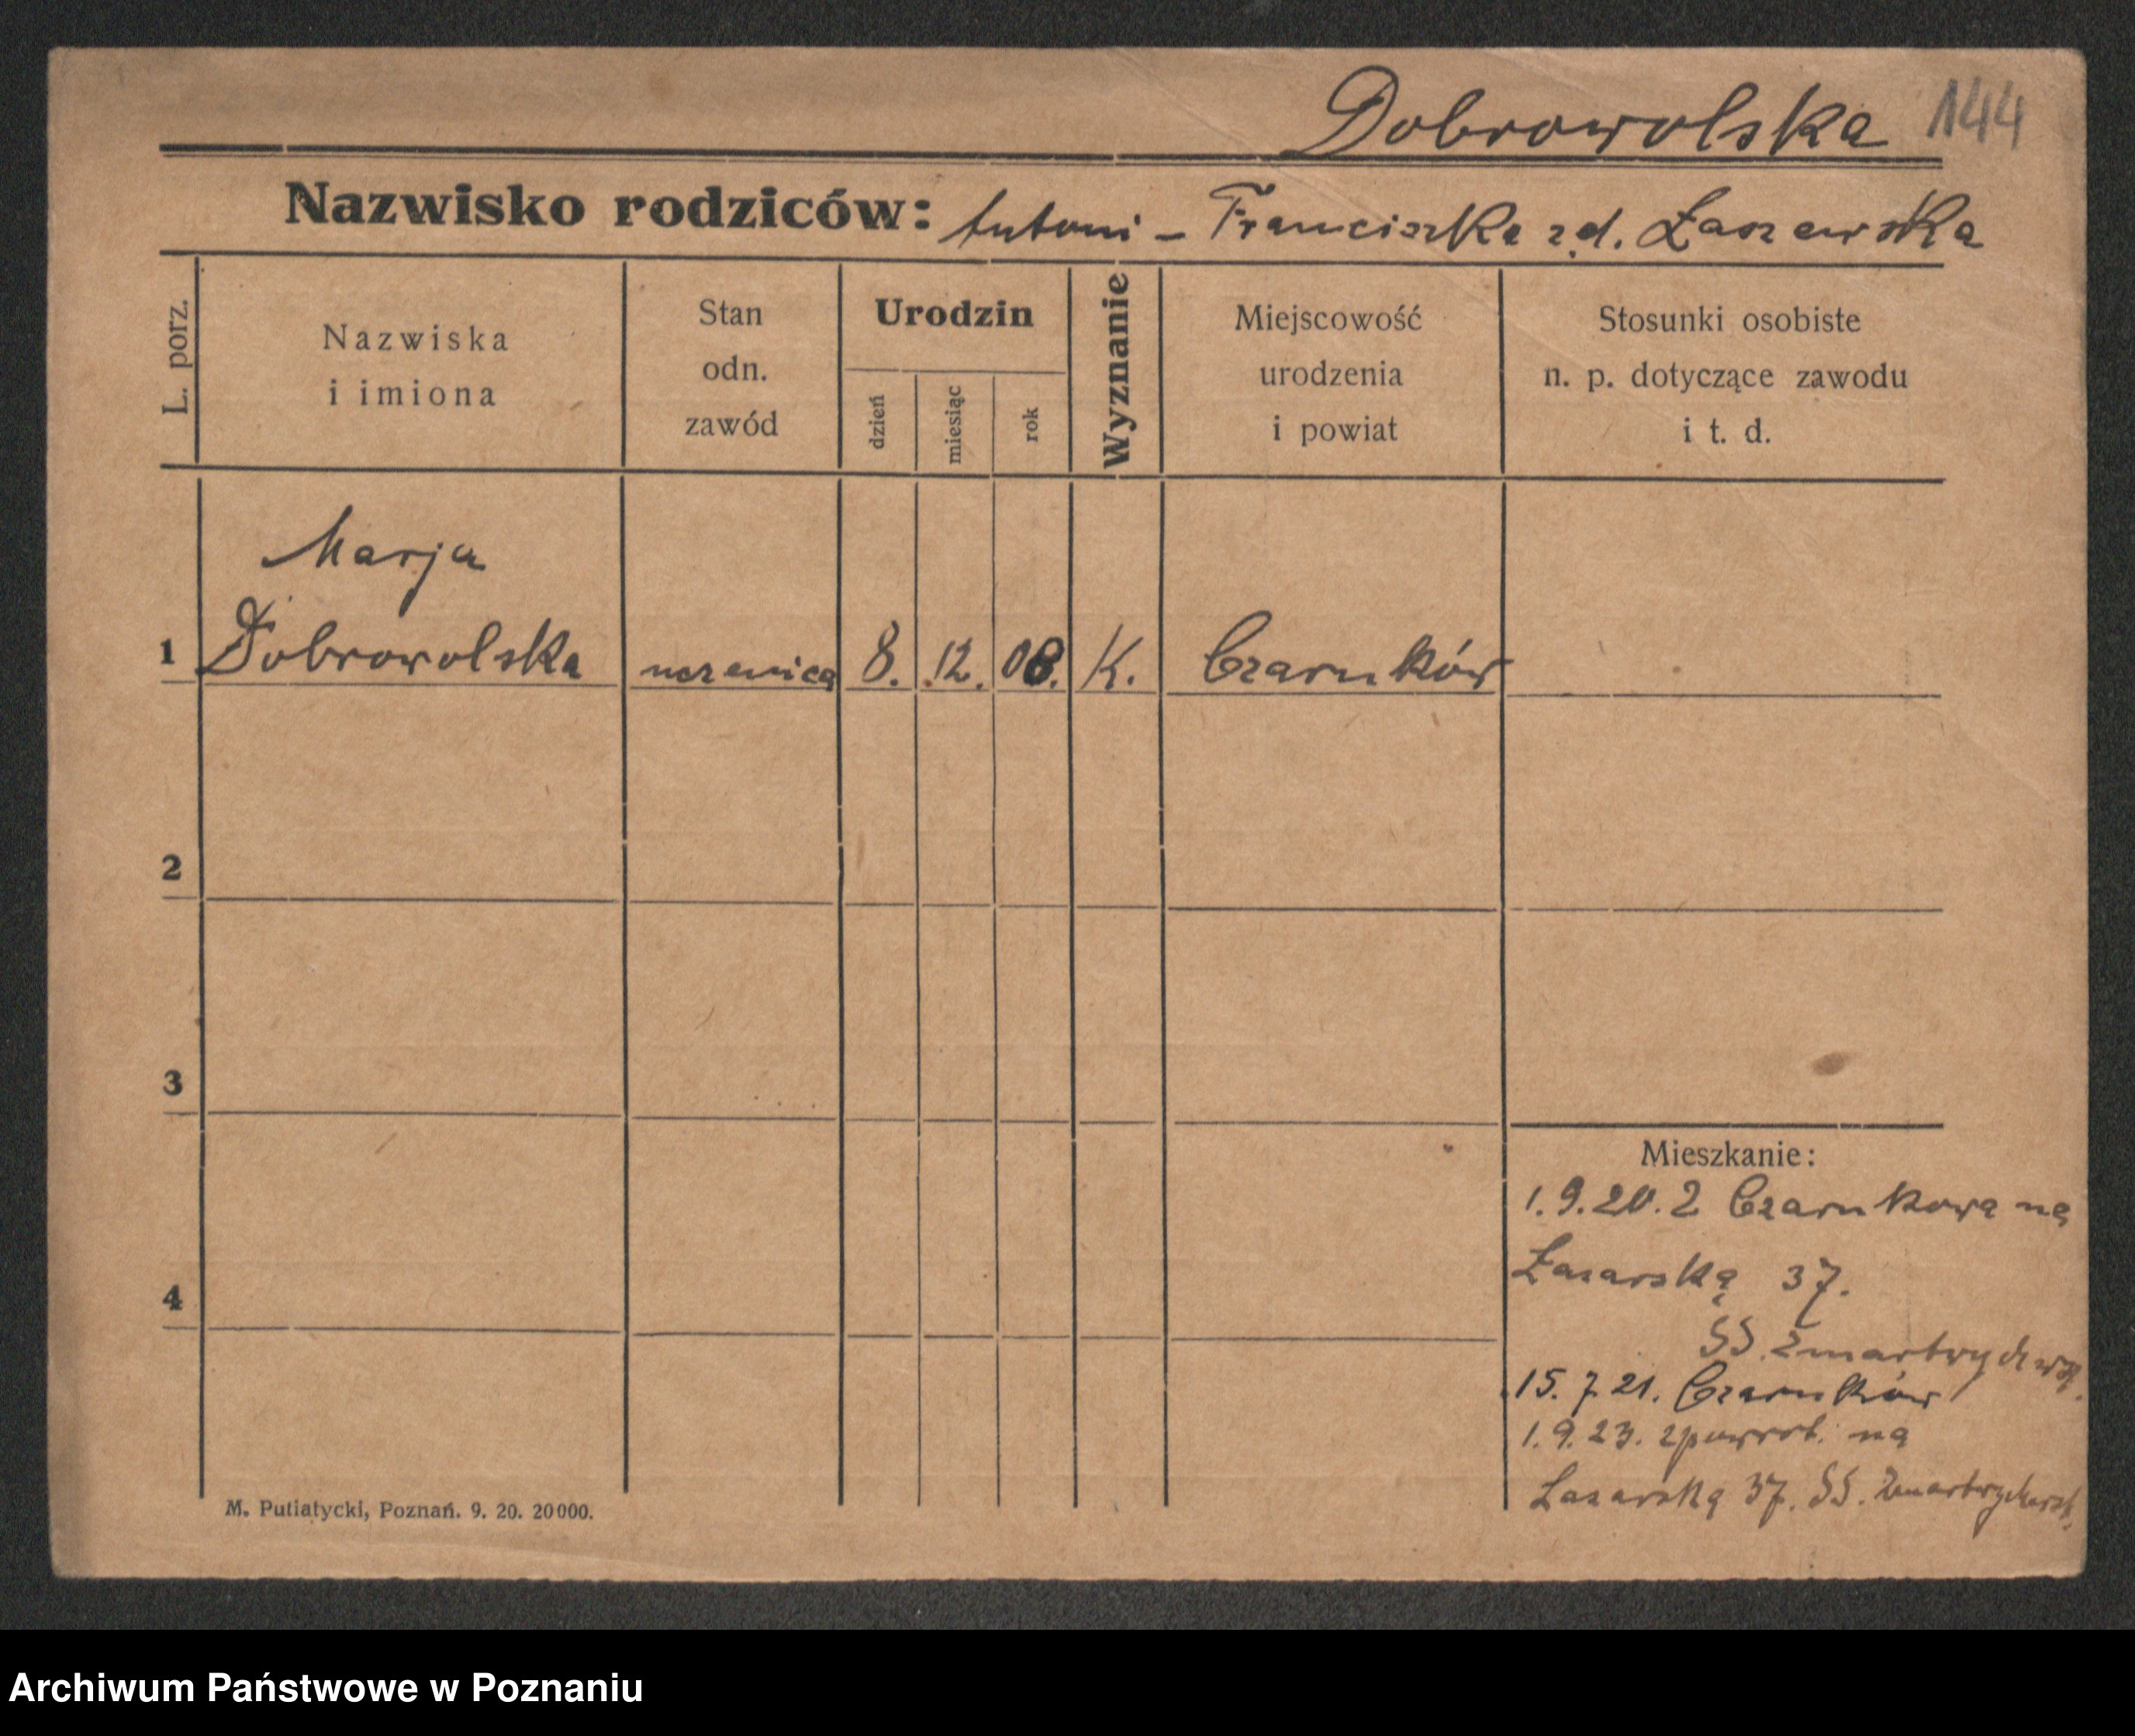 Dobrowolska 144
Nazwisko rodziców: Antoni – Franciszka z d. Łaszewska
L. porz.
Nazwiska
i imiona
Stan
odn.
zawód
Urodzin
dzień
miesiąc
rok
Wyznanie
Miejscowość
urodzenia
i powiat
Stosunki osobiste
n. p. dotyczące zawodu
i t. d.
Marja
1 Dobrowolska uczenica 8. 12. 08. K. Czarnków
2
3
Mieszkanie:
1.9.20. z Czarnkowa na
Łazarską 37.
4
SS. Zmartwychwst.
15.7.21. Czarnków
1.9.23. zpowrot. na
Łazarską 37. SS. Zmartwychwst.
M. Putiatycki, Poznań. 9. 20. 20000.
Archiwum Państwowe w Poznaniu